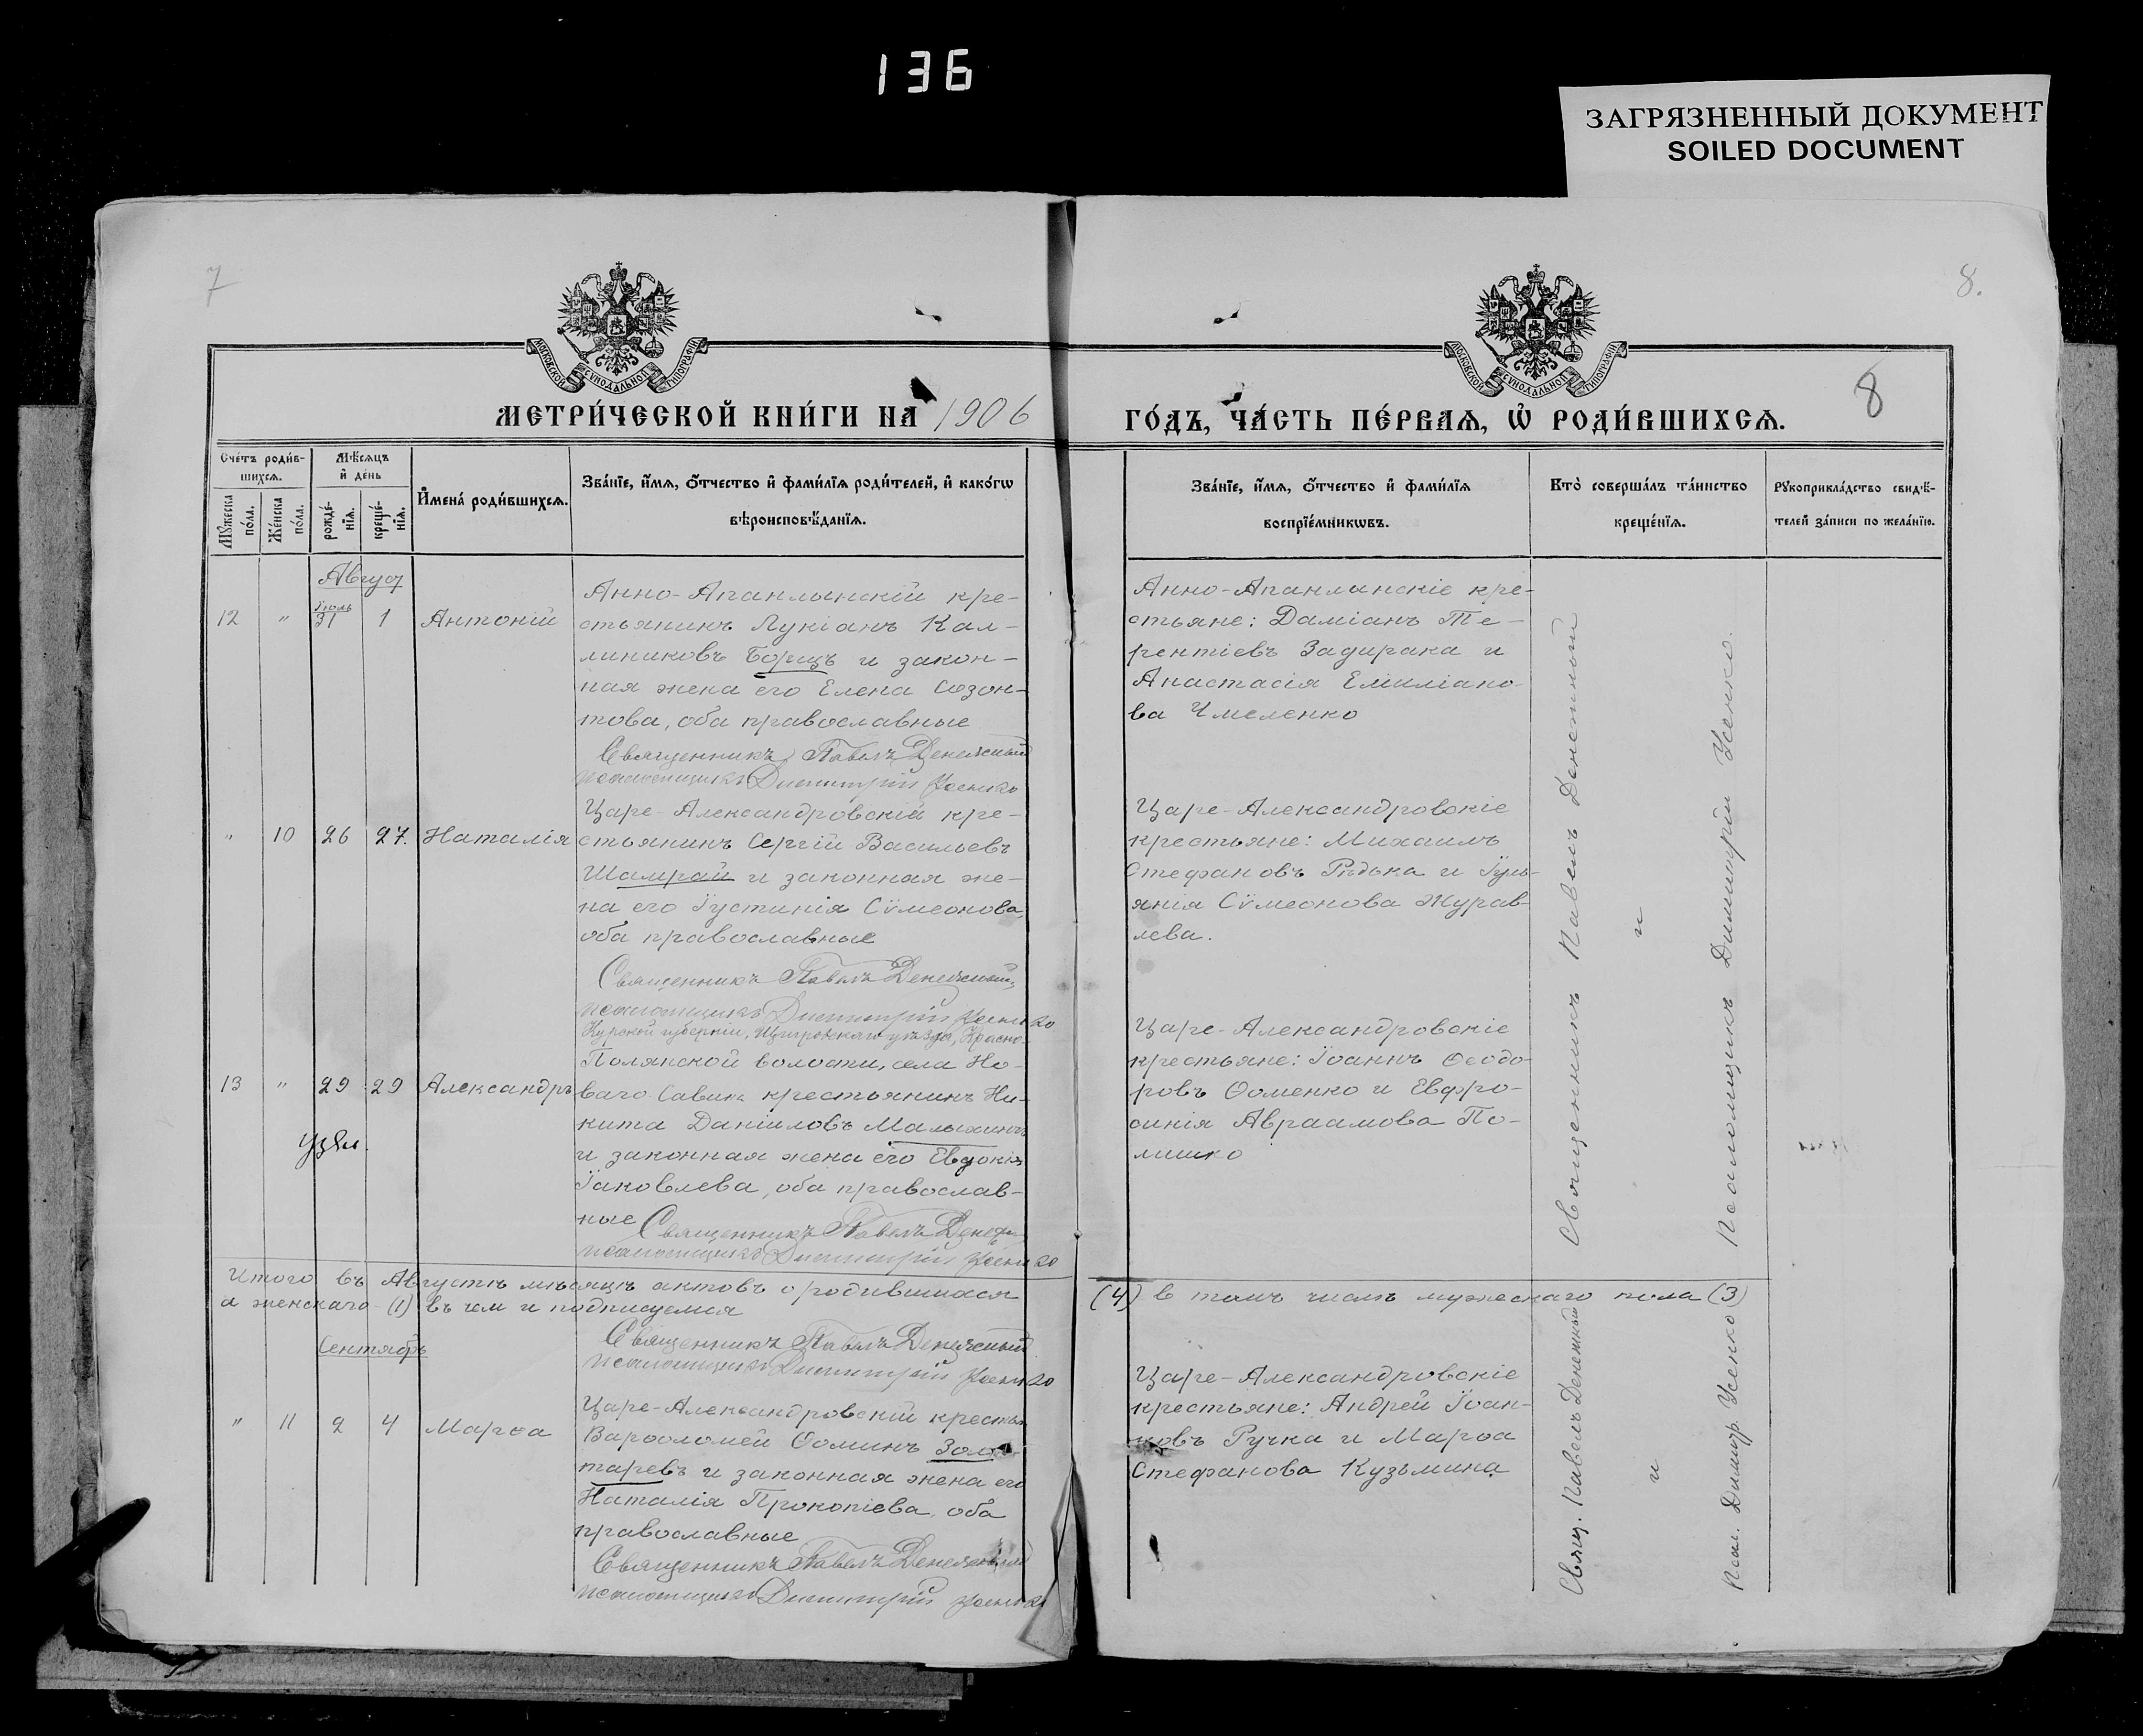 136
ЗАГРЯЗНЕННЫЙ ДОКУМЕНТ
SOILED DOCUMENT
7
8.
8
МОСКОВСКОЙ СѴНОДАЛЬНОЙ ТИПОГРАФІИ
МОСКОВСКОЙ СѴНОДАЛЬНОЙ ТИПОГРАФІИ
МЕТРИ́ЧЕСКОЙ КНИ́ГИ НА 1906
ГО́ДЪ, ЧА́СТЬ ПЕ́РВАѦ, Ѡ҆ РОДИ́ВШИХСѦ.
Сче́тъ роди́в-
шихсѧ.
Мѣ́сѧцъ
и҆ де́нь
Мꙋ́жеска по́ла.
Же́нска по́ла.
рожде́-нїѧ.
креще́-нїѧ.
И҆мена̀ роди́вшихсѧ.
Зва́нїе, и҆́мѧ, ѻ҆́тчество и҆ фами́лїѧ роди́телей, и҆ како́гѡ
вѣроисповѣ́данїѧ.
Зва́нїе, и҆́мѧ, ѻ҆́тчество и҆ фами́лїѧ
воспрїе́мникѡвъ.
Кто̀ соверша́лъ та́инство
креще́нїѧ.
Рꙋкоприкла́дство свидѣ́-
телей за́писи по жела́нїю.
Август
12 " Іюль 31 1 Антоній
Анно-Апанлынскій кре-
стьянинъ Лукіанъ Кал-
линиковъ Борщъ и закон-
ная жена его Елена Созон-
това, оба православные
Священникъ Павелъ Денежный
псаломщикъ Димитрій Усенко
Анно-Апанлинскіе кре-
стьяне: Даміанъ Те-
рентіевъ Задирака и
Анастасія Емиліано-
ва Чмеленко
" 10 26 27. Наталія
Царе-Александровскій кре-
стьянинъ Сергій Васильевъ
Шамрай и законная же-
на его Іустинія Сѵмеонова,
оба православные
Священникъ Павелъ Денежный
псаломщикъ Димитрій Усенко
Царе-Александровскіе
крестьяне: Михаилъ
Стефановъ Рѣдька и Іуль-
янія Сѵмеонова Журав-
лева.
13 " 29 29 Александръ
узял.
Курской губерніи, Щигровскаго уѣзда, Красно-
Полянской волости, села Но-
ваго Савина крестьянинъ Ни-
кита Даніиловъ Малыхинъ
и законная жена его Евдокія
Іаковлева, оба православ-
ные Священникъ Павелъ Денеж
псаломщикъ Димитрій Усенко
Царе-Александровскіе
крестьяне: Іоаннъ Ѳеодо-
ровъ Ѳоменко и Евфро-
синія Авраамова По-
лишко
Священникъ Павелъ Денежный
и
Псаломщикъ Димитрій Усенко.
Итого въ Августѣ мѣсяцѣ актовъ о родившихся
(4) в томъ числѣ мужескаго пола (3)
а женскаго (1) въ чем и подписуемся
Священникъ Павелъ Денежный
псаломщикъ Димитрій Усенко
Сентябрь
" 11 2 4 Марѳа
Царе-Александровскій кресть.
Варѳоломей Ѳоминъ Золо-
таревъ и законная жена его
Наталія Прокопіева, оба
православные
Священникъ Павелъ Денежный
псаломщикъ Димитрій Усенко
Царе-Александровскіе
крестьяне: Андрей Іоан-
новъ Ручка и Марѳа
Стефанова Кузьмина
Свящ. Павелъ Денежный
и
Псал. Димитр. Усенко